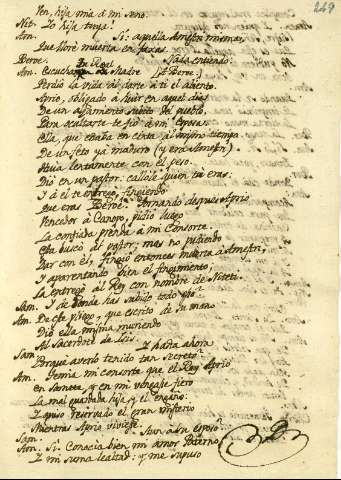 249
Ven, hija mia â mi seno.
Nit. Yo hija tuya!
Am. Si: aquella Amesin misma,
Que lloré muerta en faxas.
Beroe. Nada entiendo.
Am. Escucha Tu Real Madre (â Beroe)
Perdió la vida al darte â ti el aliento.
Aprio, obligado â huir en aquel dia
De un alzamiento subito del pueblo,
Para ocultarte te fió â mi Esposa.
Ella, que estaba en cinta al mismo tiempo
De un feto ya maduro (y era Amesin)
Huia lentamente con el peso.
Dió en un pastor: callole quien tu eras:
I â él te entregó, fingiendo
Que eras Beroe. Tornando despues Aprio
Vencedor â Canopo, pidió luego
La confiada prenda â mi Consorte.
Ella buscó al pastor; mas no pudiendo
Dar con él, fingió entonces muerta â Amesin,
I aparentando bien el fingimiento,
La entregó al Rey con nombre de Niteti.
Sam. I de donde has sabido todo esto?
Am. De este pliego, que escrito de su mano
Dió ella misma muriendo
Al Sacerdote de Isis.
Sam. I hasta ahora
Porqué averlo tenido tan secreto?
Am. Temia mi consorte que el Rey Aprio
en Sameta, y en mi vengase fiero
La mal guardada hija y el engaño:
I quiso reservado el gran misterio
Mientras Aprio viviese.
Sam. Aun â su esposo?
Am. Si. Conocia bien mi amor Paterno
I mi suma lealtad; y me supuso